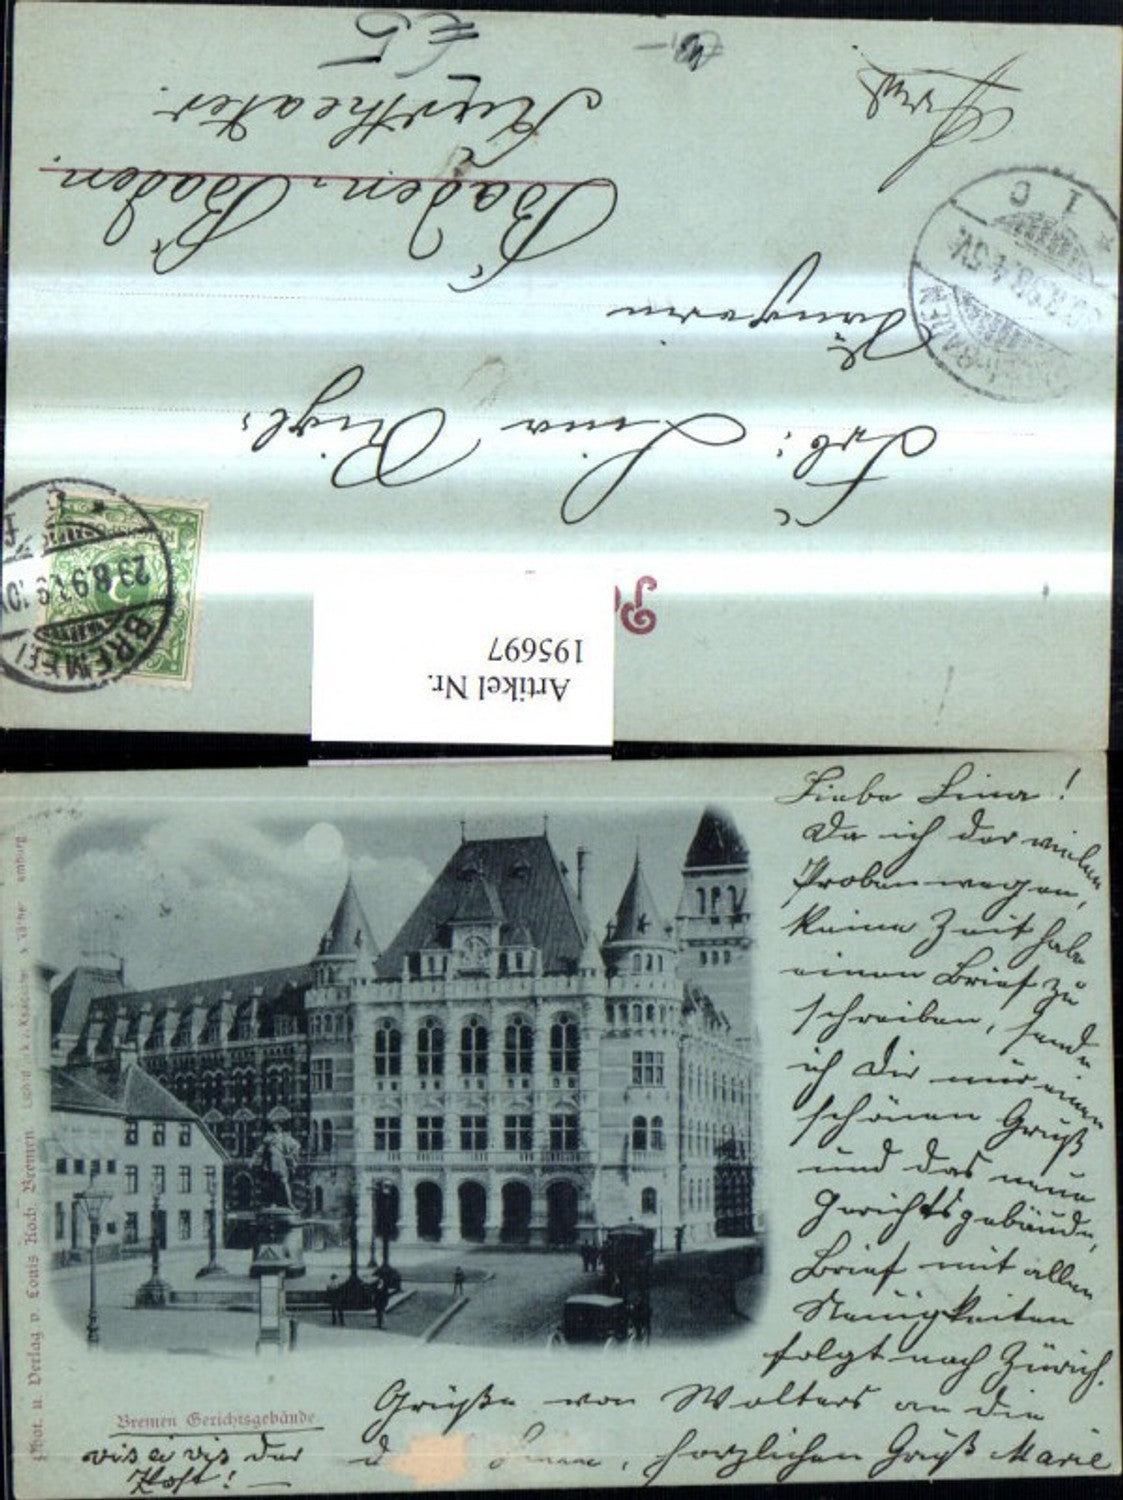 Artikel Nr.
195697
BREMEN
29.8.9
BADEN-BADEN
1 C
Frl: Lina Rigl:
Sängerin
Baden-Baden
Kurtheater.
€5
Liebe Lina!
Da ich der vielen
Proben wegen,
keine Zeit habe
einen Brief zu
schreiben, sende
ich Dir nur einen
schönen Gruß
und das neue
Gerichtsgebäude,
Brief mit allen
Neuigkeiten
folgt nach Zürich.
Grüße von Wolters an die
herzlichen Gruß Marie
Bremen Gerichtsgebäude.
vis à vis der
Post! —
Phot. u. Verlag v. Louis Koch, Bremen